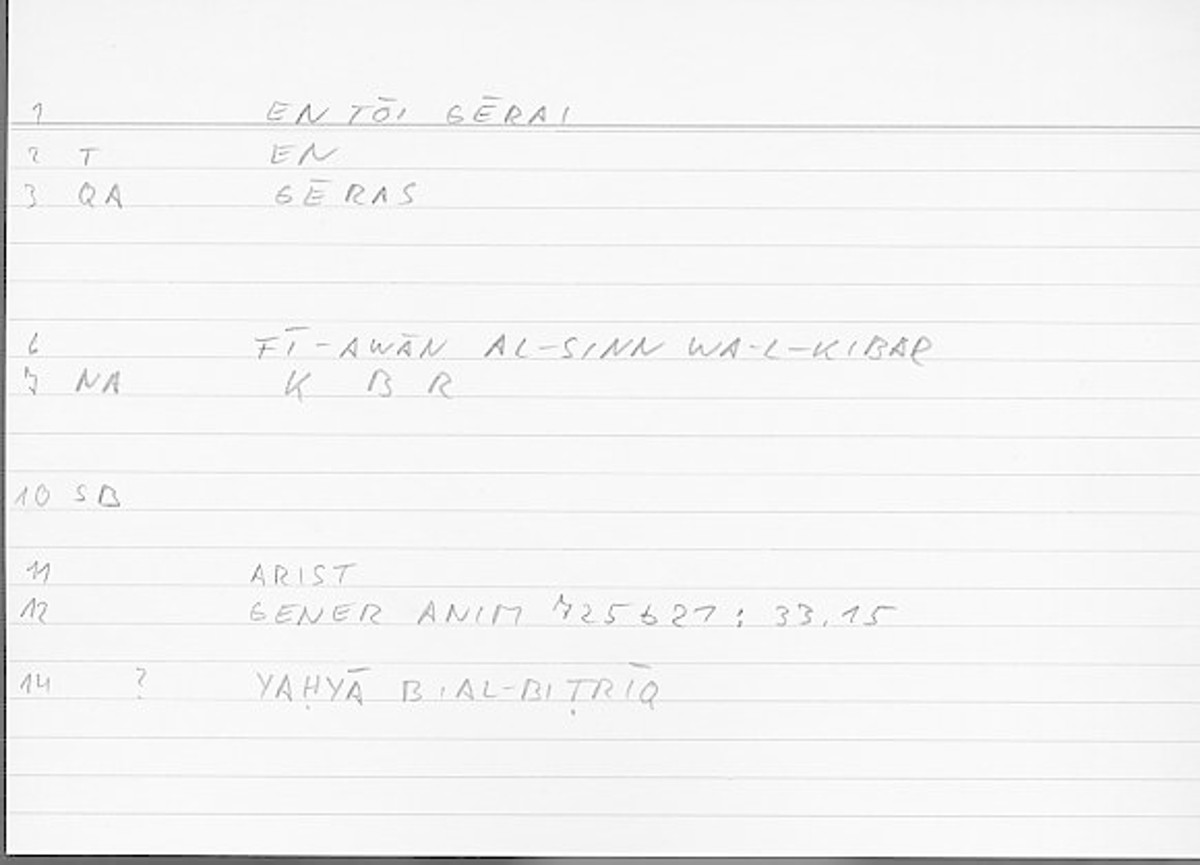 1 EN TŌI GĒRAI
2 T EN
3 QA GĒRAS
6 FĪ-AWĀN AL-SINN WA-L-KIBAR
7 NA K B R
10 SB
11 ARIST
12 GENER ANIM 725b21; 33.15
14 ? YAḤYĀ B.AL-BIṬRĪQ